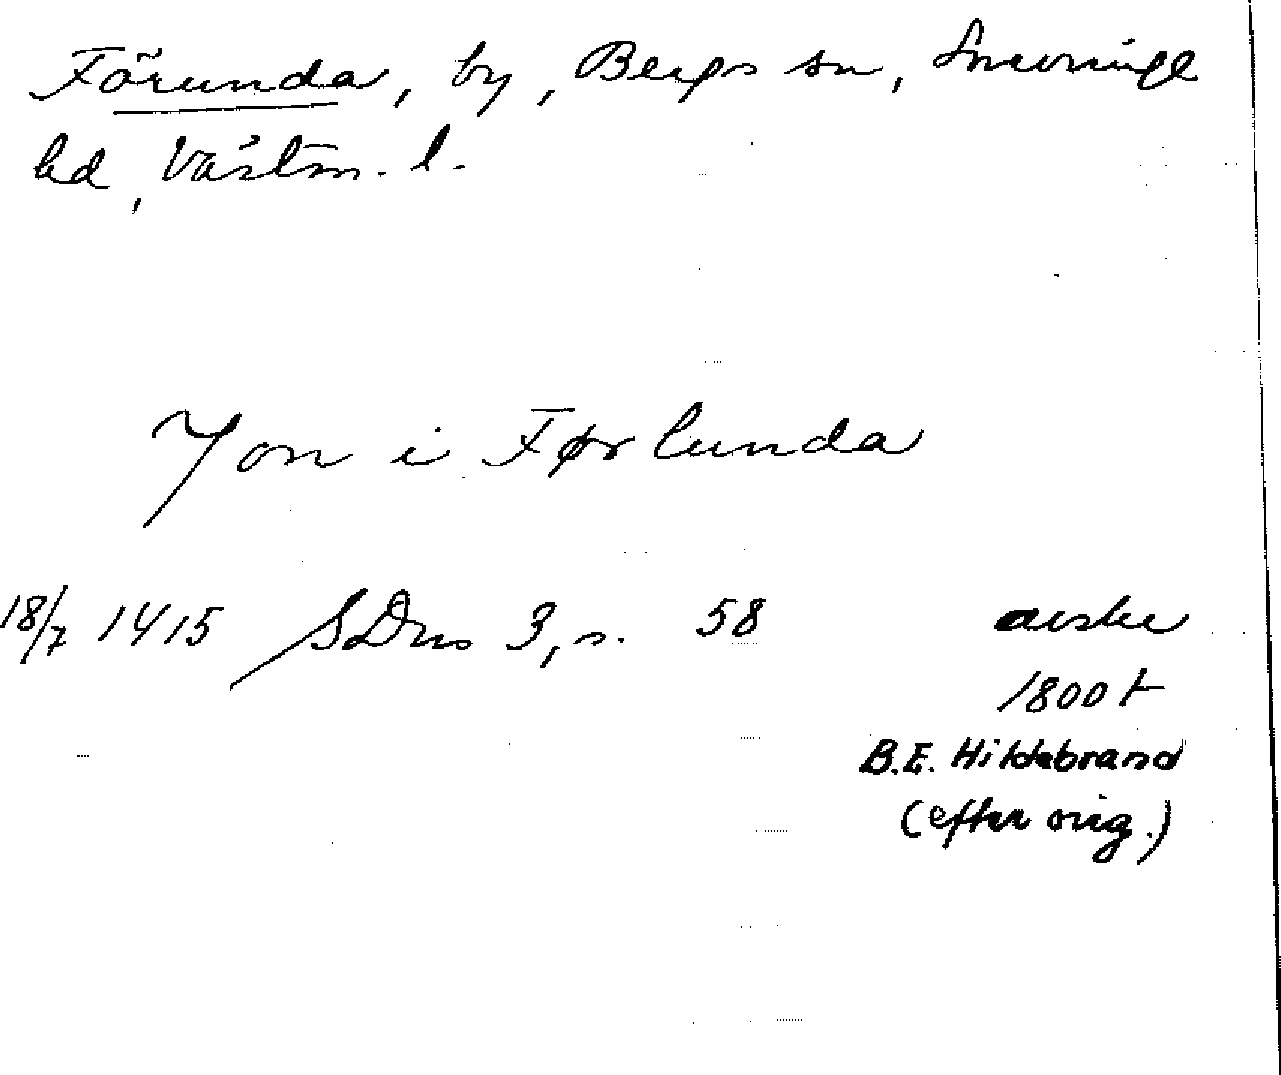 Förunda, by, Bergs sn, Snevringe
hd, Västm. l.
Jon i Førlunda
18/7 1415 SDns 3, s. 58 avskr
1800 t
B.E. Hildebrand
(efter orig.)